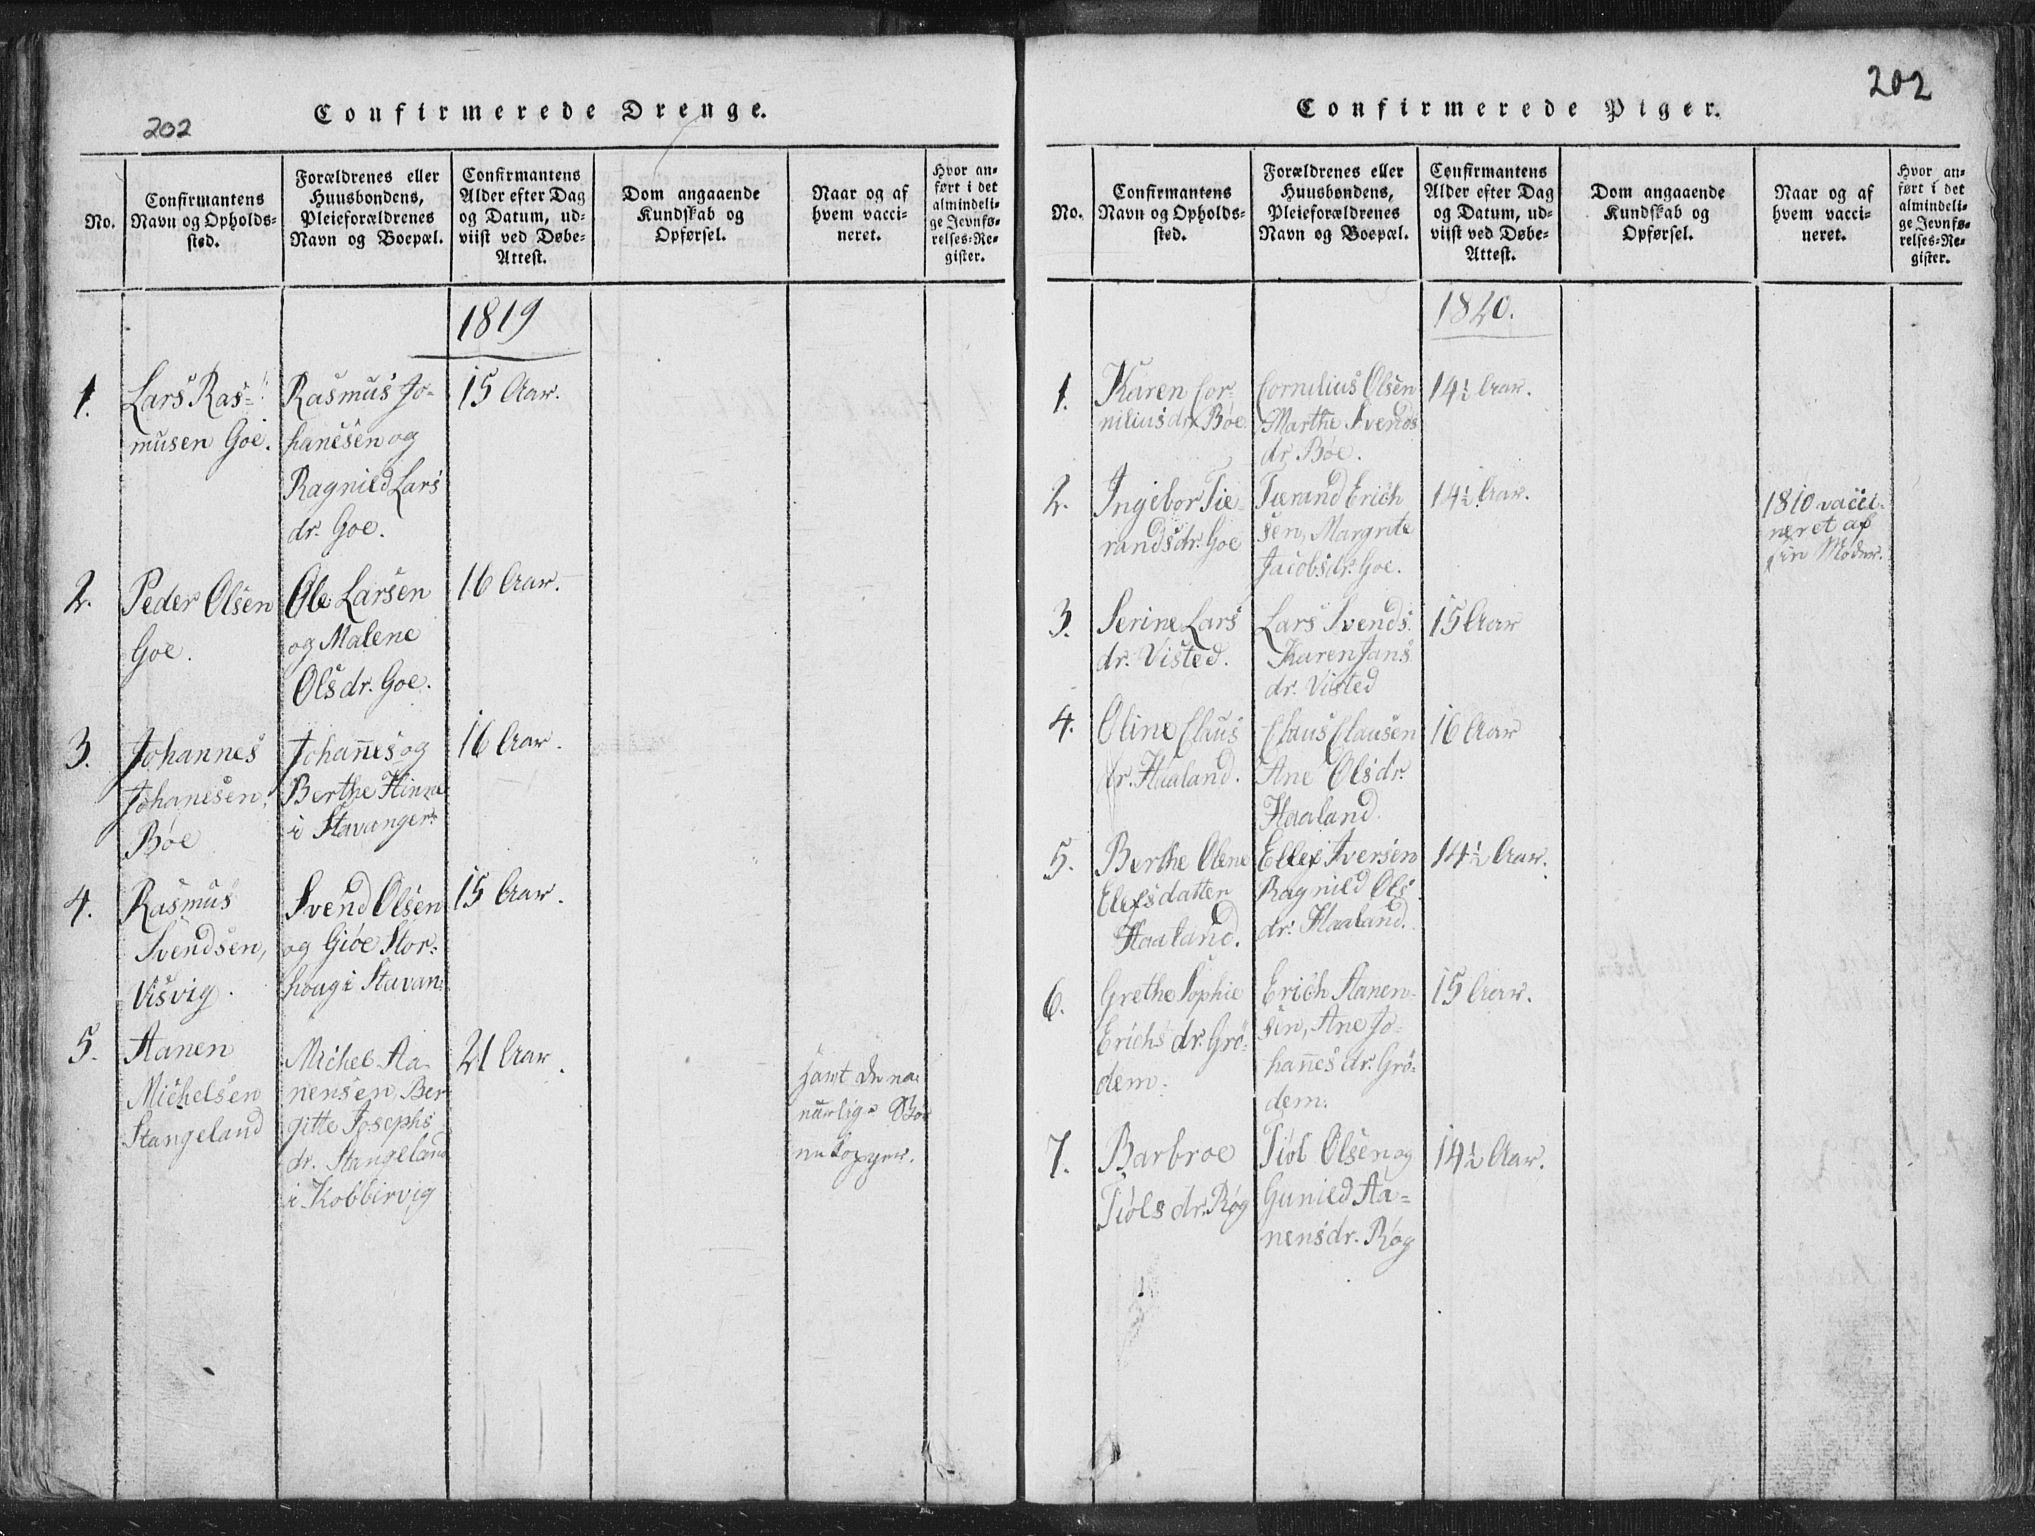 202
Confirmerede Drenge.
No.
Confirmantens
Navn og Opholds-
sted.
Forældrenes eller
Huusbondens,
Pleieforældrenes
Navn og Boepæl.
Confirmantens
Alder efter Dag
og Datum, ud-
viist ved Døbe-
Attest.
Dom angaaende
Kundskab og
Opførsel.
Naar og af
hvem vacci-
neret.
Hvor an-
ført i det
almindeli-
ge Jevnfø-
relses-Re-
gister.
1819
1.
Lars Ras-
musen Goe.
Rasmus Jo-
hanesen og
Ragnild Lars
dr. Goe.
15 Aar.
2.
Peder Olsen
Goe.
Ole Larsen
og Malene
Olsdr. Goe.
16 Aar.
3.
Johannes
Johanesen,
Bøe
Johan̄es og
Berthe Hinna
i Stavanger
16 Aar.
4.
Rasmus
Svendsen,
Visvig.
Svend Olsen
og Giøe Stor-
houg i Stavan
15 Aar.
5.
Aanen
Michelsen
Stangeland
Michel Aa-
nensen Ber
gitte Josephs
dr. Stangeland
i Kobbervig
21 Aar.
havt de na
turlige Bør
ne kopper.
202
Confirmerede Piger.
No.
Confirmantens
Navn og Opholds-
sted.
Forældrenes eller
Huusbondens,
Pleieforældrenes
Navn og Boepæl.
Confirmantens
Alder efter Dag
og Datum, ud-
viist ved Døbe-
Attest.
Dom angaaende
Kundskab og
Opførsel.
Naar og af
hvem vacci-
neret.
Hvor an-
ført i det
almindeli-
ge Jevnfø-
relses-Re-
gister.
1820.
1.
Karen Cor-
niliusdr. Bøe
Cornilius Olsen
Marthe Svends
dr Bøe.
14½ Aar.
2.
Ingebor Tie
randsdr. Goe
Tierand Erich
sen, Margrete
Jacobsdr. Goe.
14½ Aar.
1810 vacci-
neret af
sin Moder.
3.
Serine Lars
dr. Visted.
Lars Svends.
Karen Jans
dr. Visted
15 Aar
4.
Oline Claus
dr. Haaland.
Claus Clausen
Ane Olsdr.
Haaland.
16 Aar
5.
Berthe Olene
Elefsdatter
Haaland.
Ellef Iversen
Ragnild Ols
dr. Haaland.
14½ Aar.
6.
Grethe Sophie
Erichs dr. Grö-
dem.
Erich Aanen-
sen, Ane Jo-
han̄es dr. Grö-
dem.
15 Aar.
7.
Barbroe
Tiøls dr. Røg
Tiøl Olsen og
Gunild Aa-
nensdr. Røg
14½ Aar.